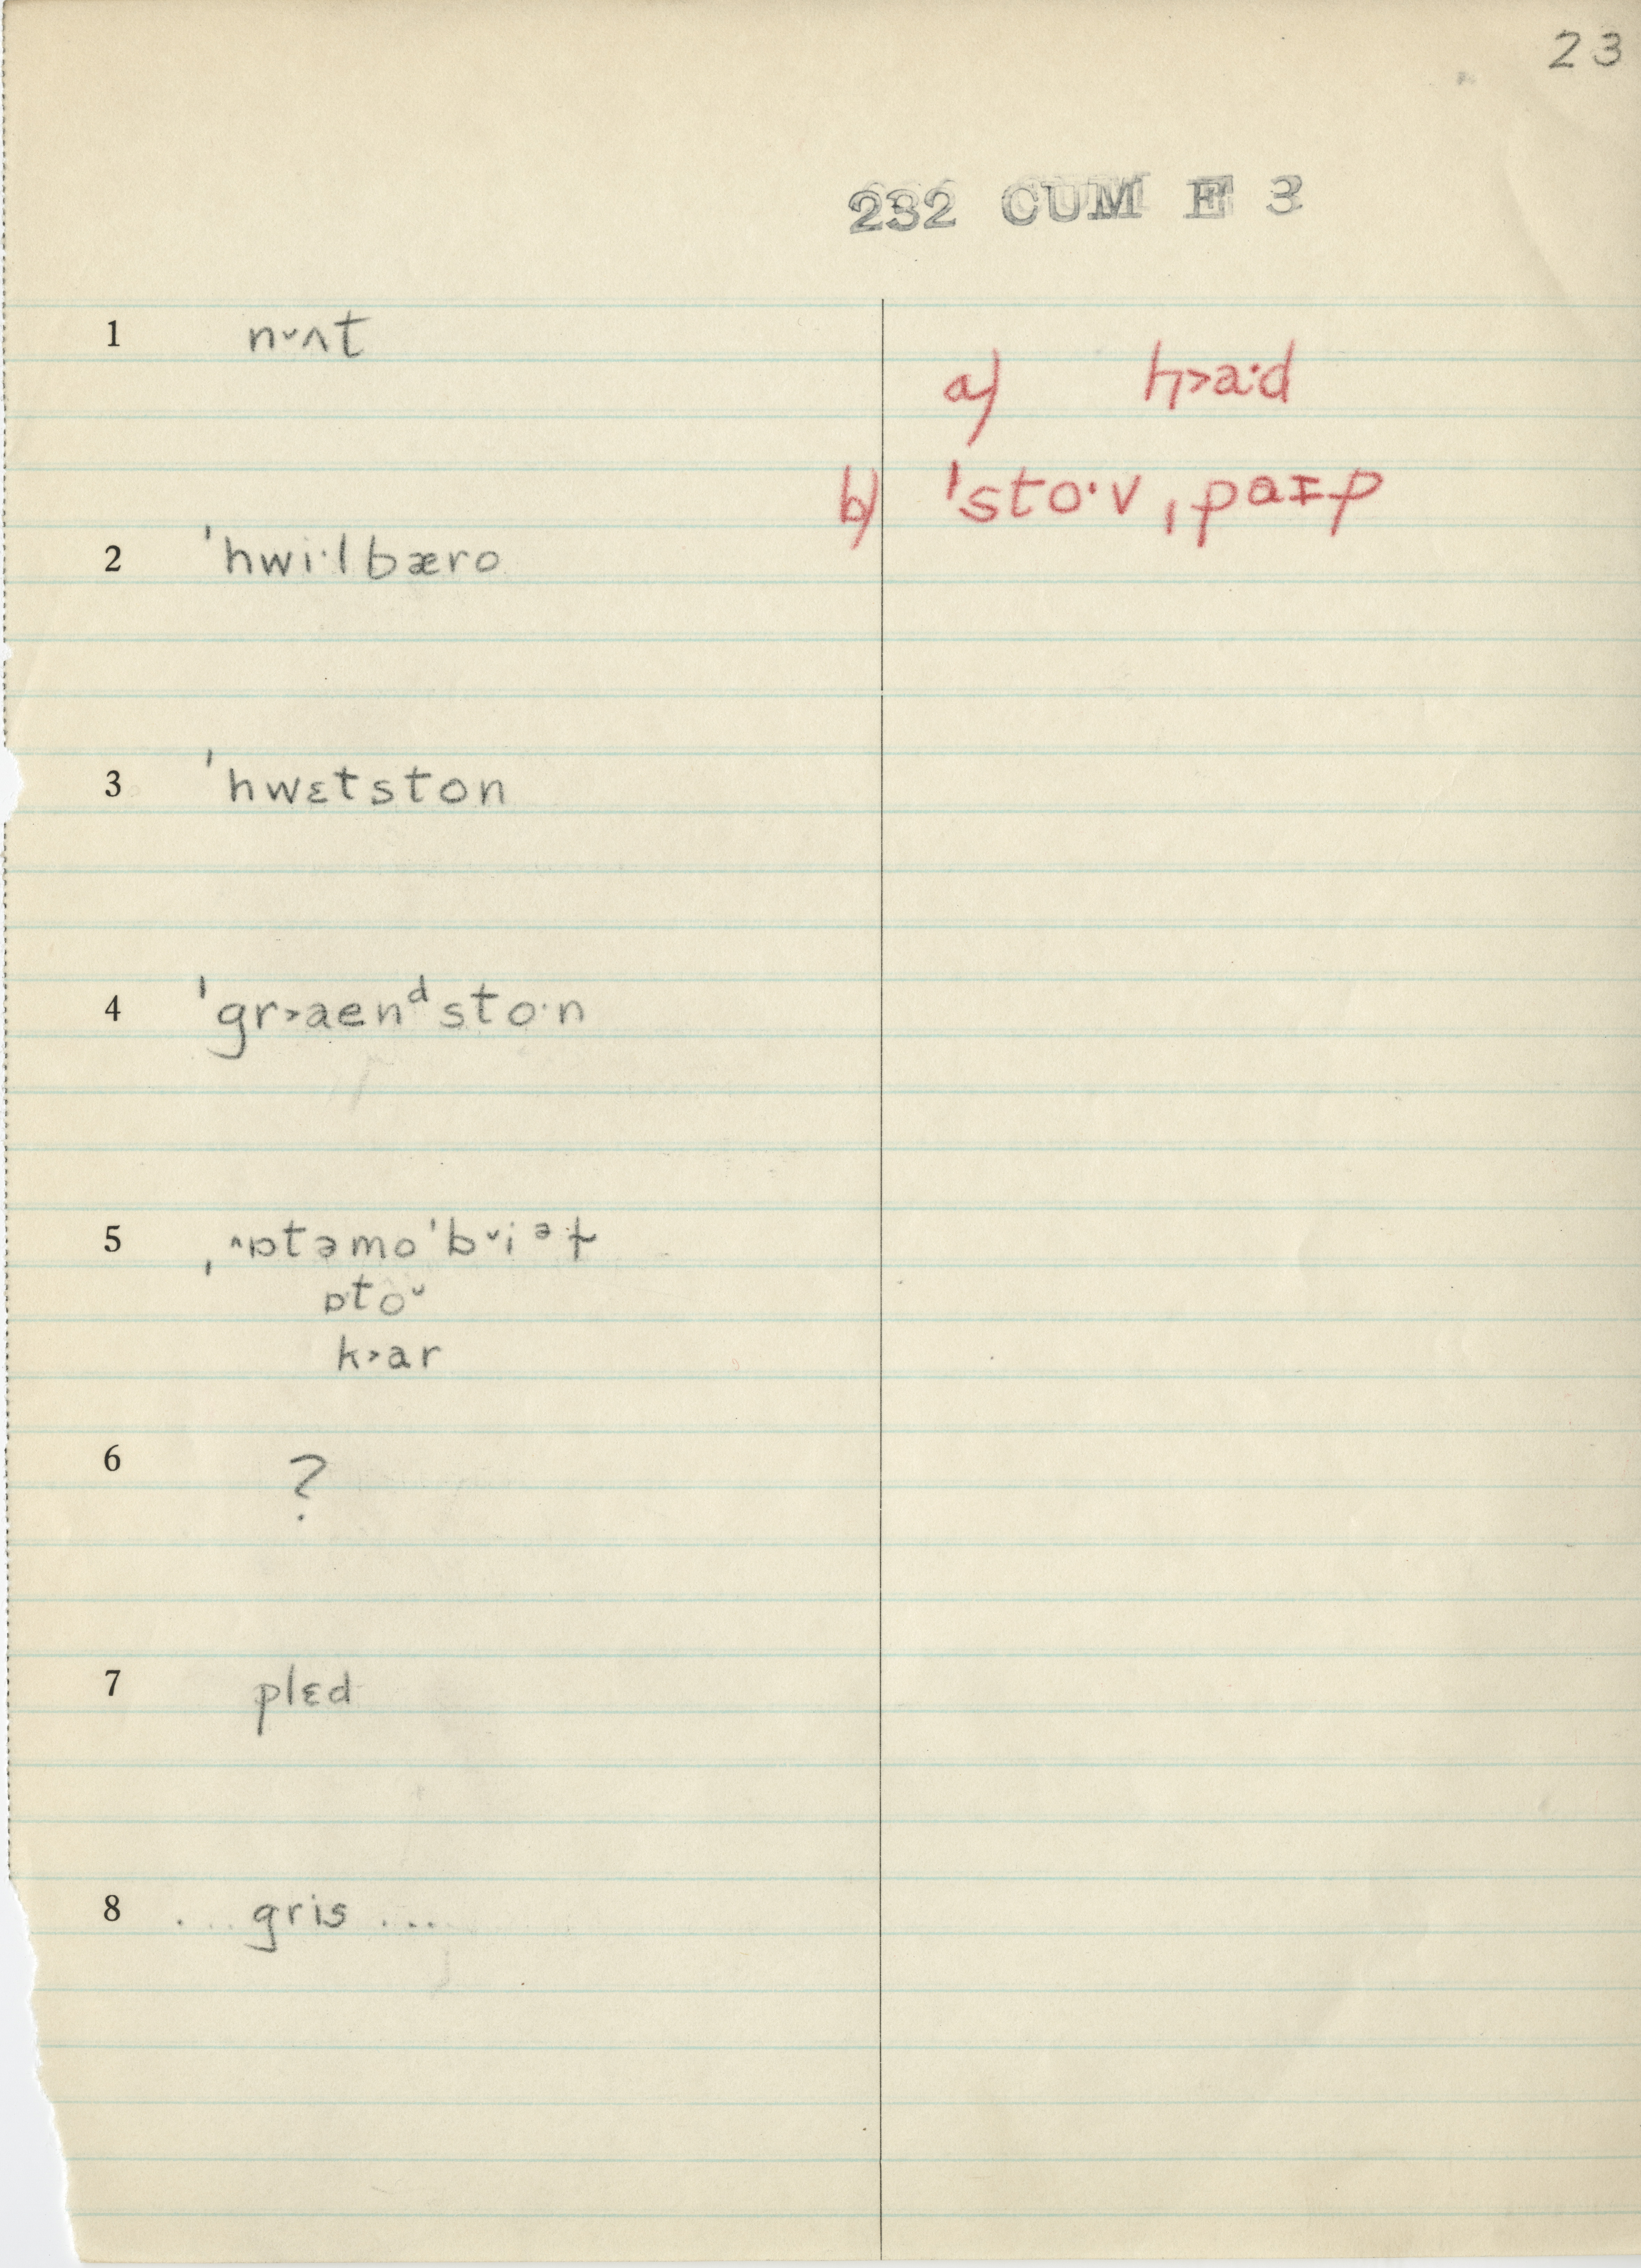 23
232 CUM E 3
1 n˅ʌt
a) h>a·d
b) ˈsto·v ˌpaɪp
2 ˈhwi·lbæro
3 ˈhwɛtston
4 ˈgr>aenᵈsto·n
5 ˌ^ɒtəmoˈb˅iᵊɫ
ɒto˅
k>ar
6 ?
7 plɛd
8 ... gris ...